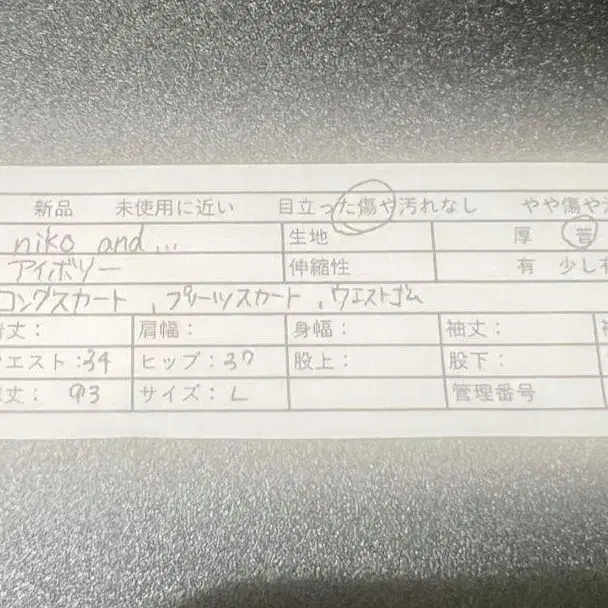 新品 未使用に近い 目立った傷や汚れなし やや傷や汚
niko and... 生地 厚 普
アイボリー 伸縮性 有 少し有
ロングスカート、プリーツスカート、ウエストゴム
着丈： 肩幅： 身幅： 袖丈：
ウエスト：34 ヒップ：37 股上： 股下：
丈： 93 サイズ：L 管理番号